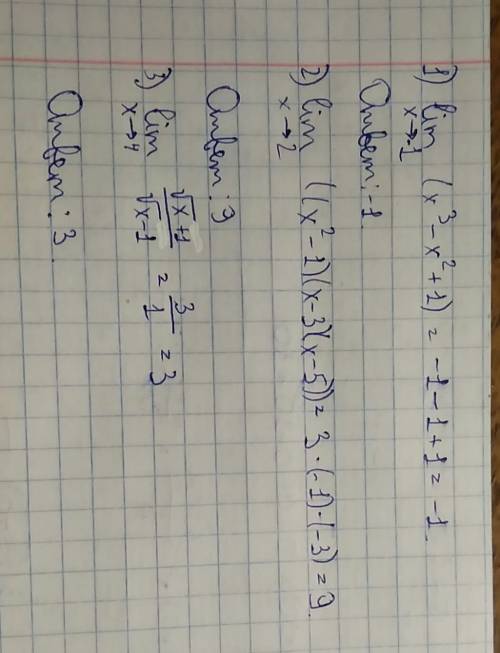 1) lim x→-1 (x³ - x² + 1) = -1 - 1 + 1 = -1.
Ответ: -1.
2) lim x→2 ((x² - 1)(x - 3)(x - 5)) = 3 · (-1) · (-3) = 9.
Ответ: 9
3) lim x→4 (√x + 1)/(√x - 1) = 3/1 = 3
Ответ: 3.